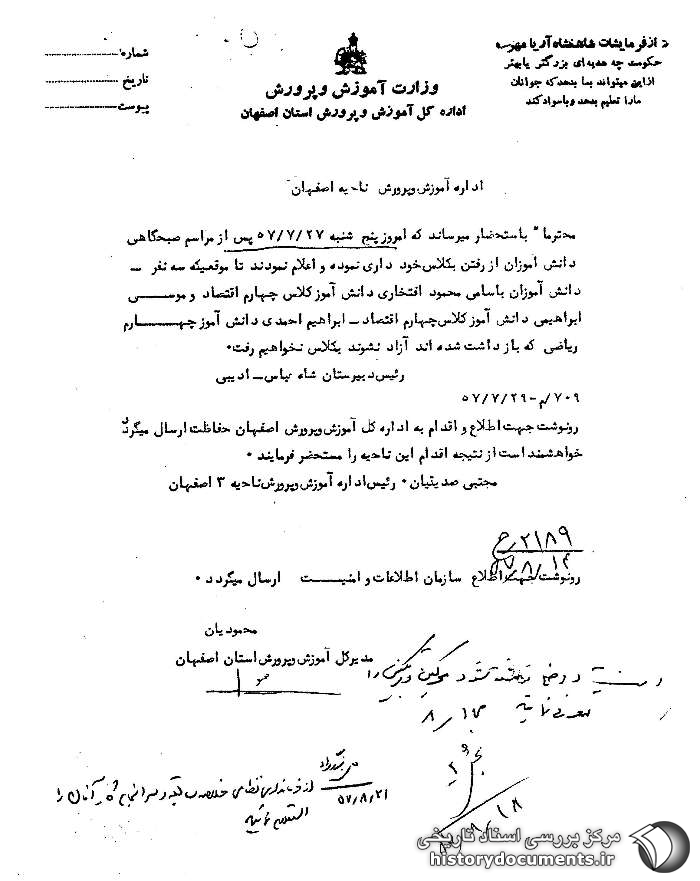 از فرمایشات شاهنشاه آریا مهر
حکومت چه هدیه ای بزرگتر یا بهتر
از این میتواند بما بدهد که جوانان
ما را تعلیم بدهد و با سواد کند
وزارت آموزش و پرورش
اداره کل آموزش و پرورش استان اصفهان
شماره
تاریخ
پیوست
اداره آموزش و پرورش ناحیه اصفهان
محترما" باستحضار میرساند که امروز پنج شنبه ۵۷/۷/۲۷ پس از مراسم صبحگاهی
دانش آموزان از رفتن بکلاس خود داری نموده و اعلام نمودند تا موقعیکه سه نفر ــ
دانش آموزان باسامی محمود افتخاری دانش آموز کلاس چهارم اقتصاد و موسی
ابراهیمی دانش آموز کلاس چهارم اقتصاد ـ ابراهیم احمدی دانش آموز چهارم
ریاضی که باز داشت شده اند آزاد نشوند بکلاس نخواهیم رفت۰
رئیس دبیرستان شاه عباس ـ ادیبی
۷۰۹/م-۵۷/۷/۲۹
رونوشت جهت اطلاع و اقدام به اداره کل آموزش و پرورش اصفهان حفاظت ارسال میگردد
خواهشمند است از نتیجه اقدام این ناحیه را مستحضر فرمایند ۰
مجتبی صدیقیان ۰ رئیس اداره آموزش و پرورش ناحیه ۳ اصفهان
۲۱۸۹/ح
رونوشت جهت اطلاع سازمان اطلاعات و امنیت ارسال میگردد ۰
محمودیان
مدیرکل آموزش و پرورش استان اصفهان
۵۷/۸/۲۱
مرکز بررسی اسناد تاریخی
historydocuments.ir